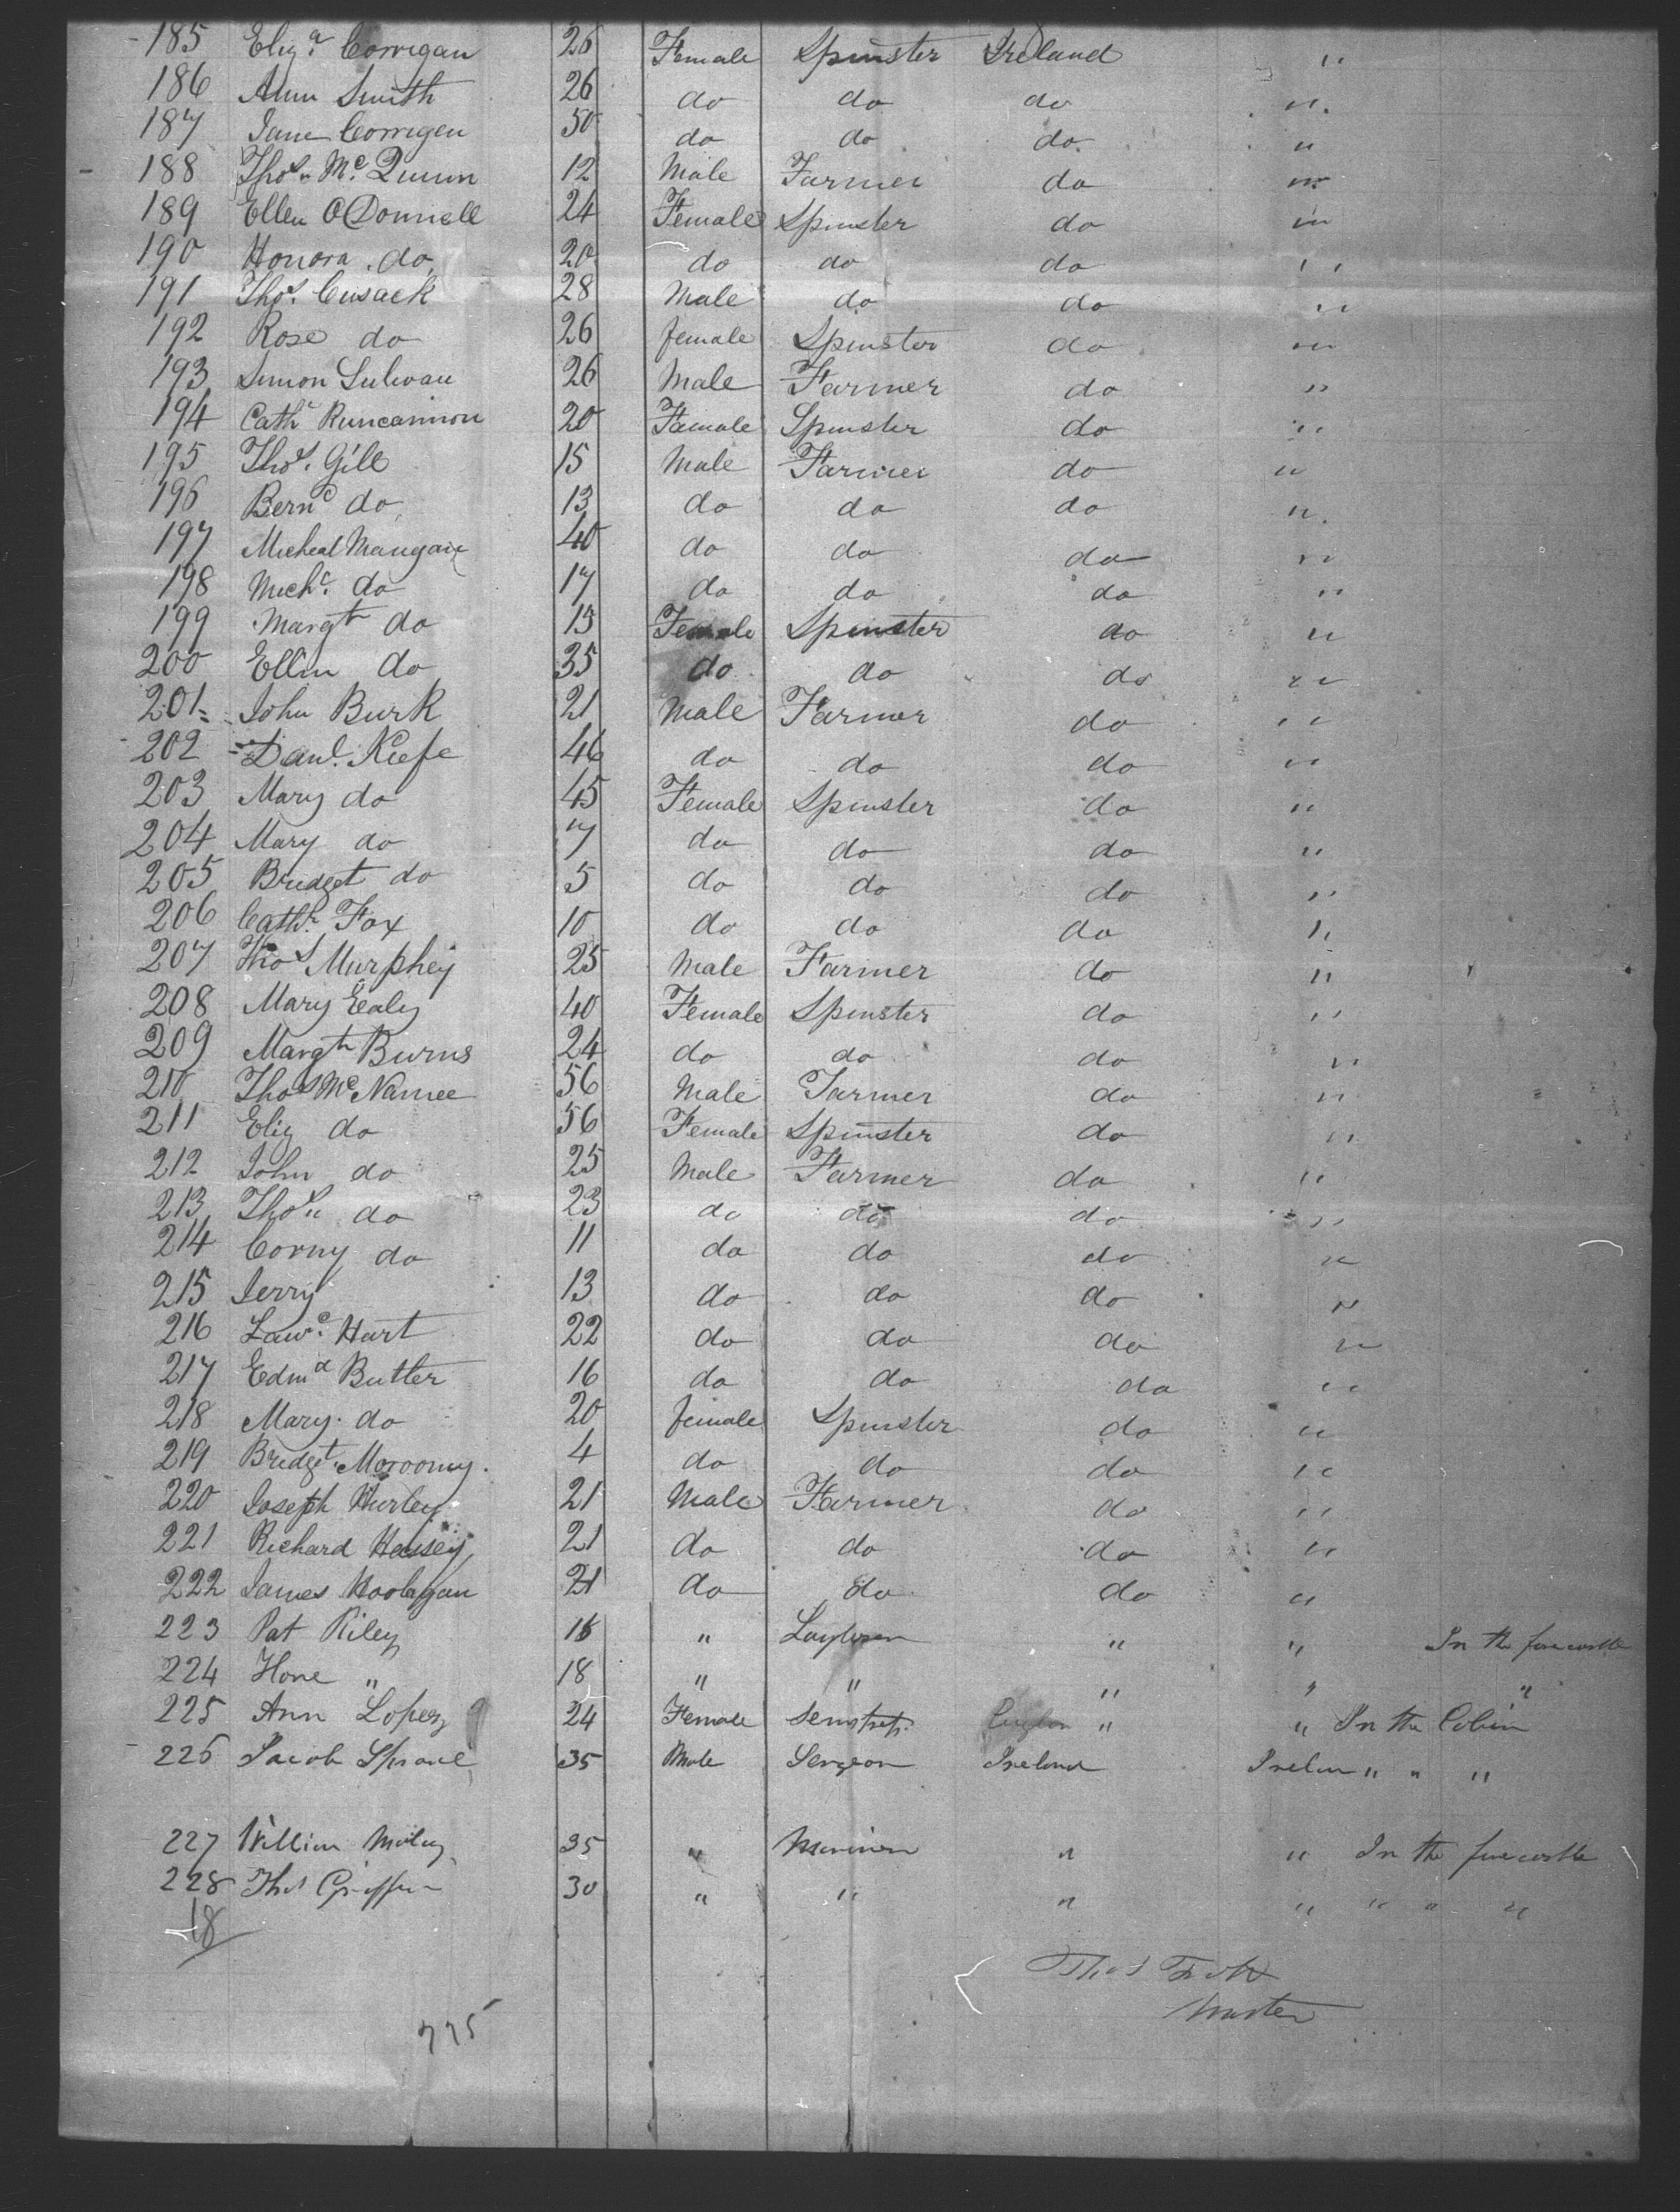 185 Eliz.a Corrigan 26 Female Spinster Ireland "
186 Ann Smith 26 do do do "
187 Jane Corrigen 50 do do do "
188 Thos. Mc.Quinn 12 Male Farmer do "
189 Ellen O Donnell 24 Female Spinster do "
190 Honora do 20 do do do "
191 Thos. Cusack 28 Male do do "
192 Rose do 26 female Spinster do "
193 Simon Sulivan 26 Male Farmer do "
194 Cath Runcannion 20 Female Spinster do "
195 Thos. Gill 15 Male Farmer do "
196 Bernd do 13 do do do "
197 Micheal Mangan 40 do do do "
198 Mich. do 17 do do do "
199 Margt do 13 Female Spinster do "
200 Ellin do 35 do do do "
201 John Burk 21 Male Farmer do "
202 Danl. Kiefe 46 do do do "
203 Mary do 45 Female Spinster do "
204 Mary do 7 do do do "
205 Bridget do 5 do do do "
206 Cath. Fox 10 do do do "
207 Thos Murphey 25 Male Farmer do "
208 Mary Ealy 40 Female Spinster do "
209 Margt Burns 24 do do do "
210 Thos Mc Namee 56 Male Farmer do "
211 Eliz do 56 Female Spinster do "
212 John do 25 Male Farmer do "
213 Thos do 23 do do do "
214 Corny do 11 do do do "
215 Jerry 13 do do do "
216 Lawe. Hart 22 do do do "
217 Edmd Butler 16 do do do "
218 Mary. do 20 female Spinster do "
219 Bridget Morooney. 4 do do do "
220 Joseph Hurley 21 Male Farmer do "
221 Richard Hassey 21 do do do "
222 James Hoolagan 21 do do do "
223 Pat Riley 16 " " " In the forecastle
224 Hone " 18 " " " " "
225 Ann Lopez 24 Female " " In the Cabin
226 Jacob 35 Male Sergeon Ireland " " "
227 William 35 " Mariner " " In the forecastle
228 Thos Griffin 30 " " " " " " "
18
Thos
Master
225